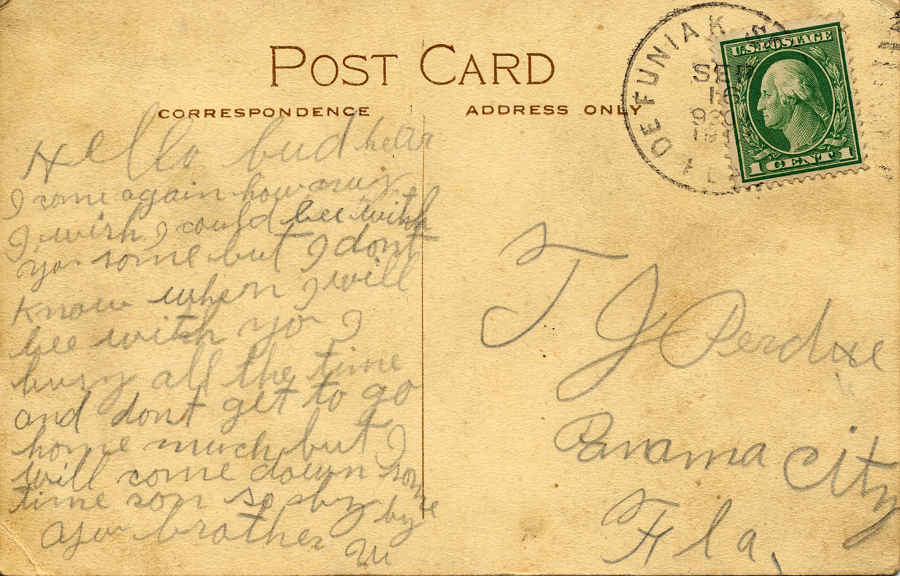 POST CARD
CORRESPONDENCE
ADDRESS ONLY
DE FUNIAK
SEP
16
FLA
U.S. POSTAGE
1 CENT 1
Hello bud
I come again how
I wish I could bee with
you some but I dont
know when I will
bee with you I
busy all the time
and dont get to go
home much but I
will come down some
time son so by by
your brother
T J Perdue
Panama City
Fla.